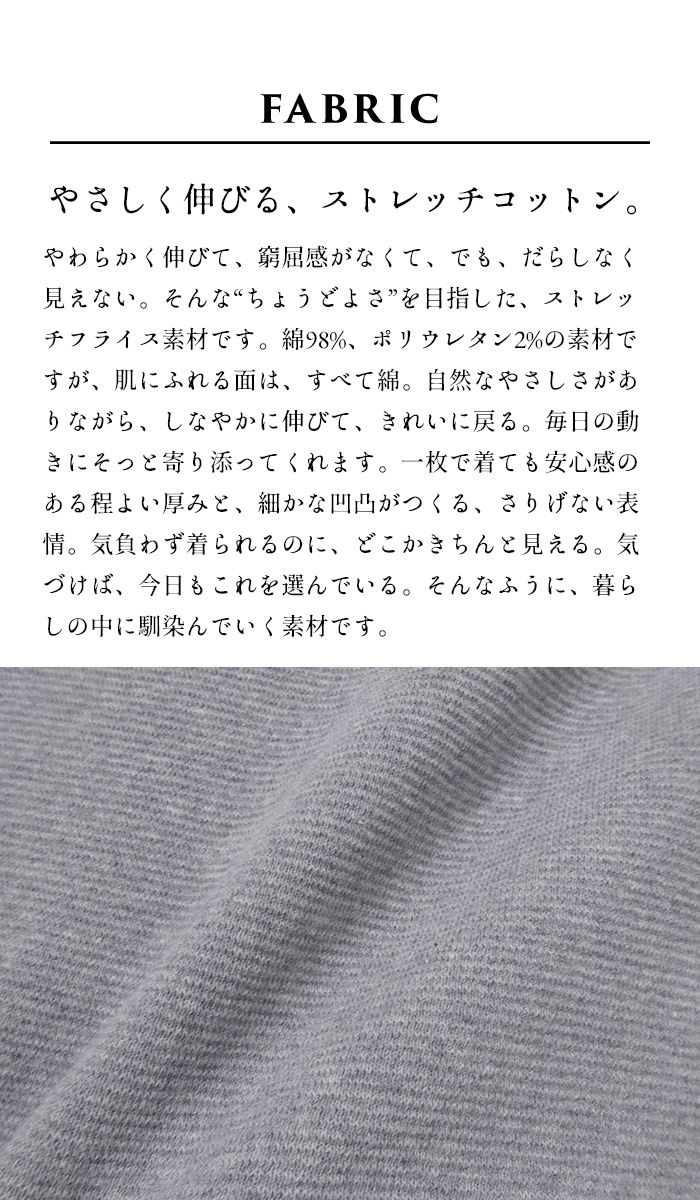 FABRIC
やさしく伸びる、ストレッチコットン。
やわらかく伸びて、窮屈感がなくて、でも、だらしなく
見えない。そんな“ちょうどよさ”を目指した、ストレッ
チフライス素材です。綿98%、ポリウレタン2%の素材で
すが、肌にふれる面は、すべて綿。自然なやさしさがあ
りながら、しなやかに伸びて、きれいに戻る。毎日の動
きにそっと寄り添ってくれます。一枚で着ても安心感の
ある程よい厚みと、細かな凹凸がつくる、さりげない表
情。気負わず着られるのに、どこかきちんと見える。気
づけば、今日もこれを選んでいる。そんなふうに、暮ら
しの中に馴染んでいく素材です。